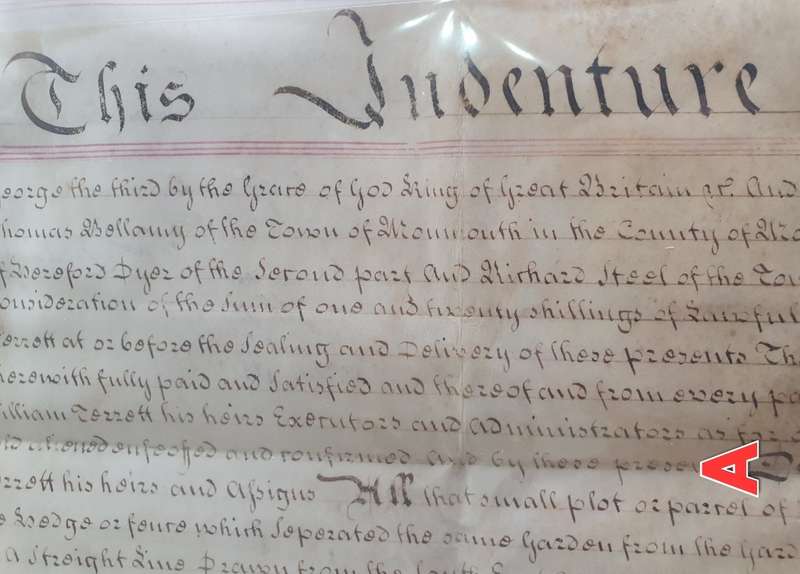 This Indenture
eorge the third by the Grace of God King of Great Britain &c. And
homas Bellamy of the Town of Monmouth in the County of Mo
f Hereford Dyer of the Second part And Richard Steel of the Tow
onsideration of the Sum of one and twenty shillings of Lawful
errett at or before the Sealing and Delivery of these presents Th
herewith fully paid and Satisfied and thereof and from every pa
illiam Terrett his heirs Executors and administrators as
aliened enfeoffed and confirmed And by these presen
A
errett his heirs and Assigns All that small plot or parcel of
e Hedge or fence which Seperated the same Garden from the Gard
a Streight Line Drawn from the South